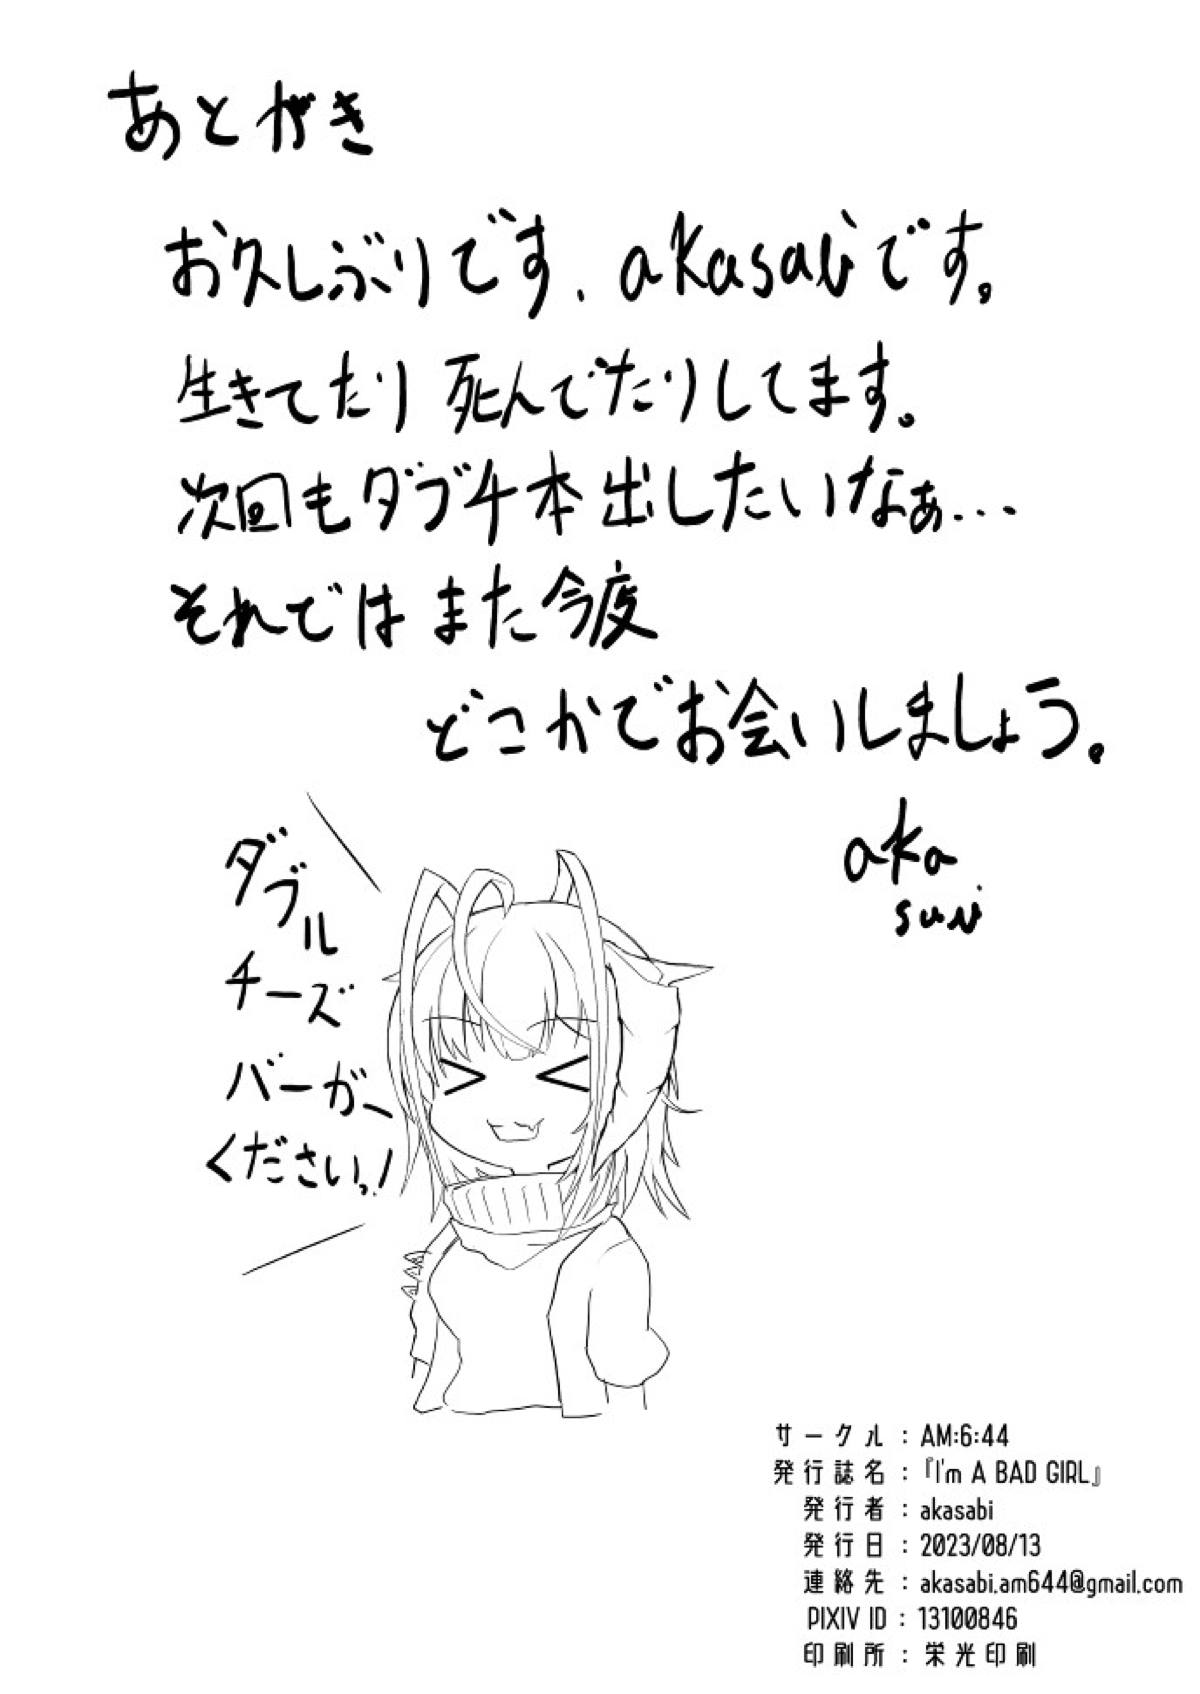 あとがき
お久しぶりです、akasabiです。
生きてたり死んでたりしてます。
次回もダブチ本出したいなぁ...
それではまた今度
どこかでお会いしましょう。
aka
sabi
ダブル
チーズ
バーガー
くださいっ!
サークル：AM:6:44
発行誌名：『I'm A BAD GIRL』
発行者：akasabi
発行日：2023/08/13
連絡先：akasabi.am644@gmail.com
PIXIV ID：13100846
印刷所：栄光印刷